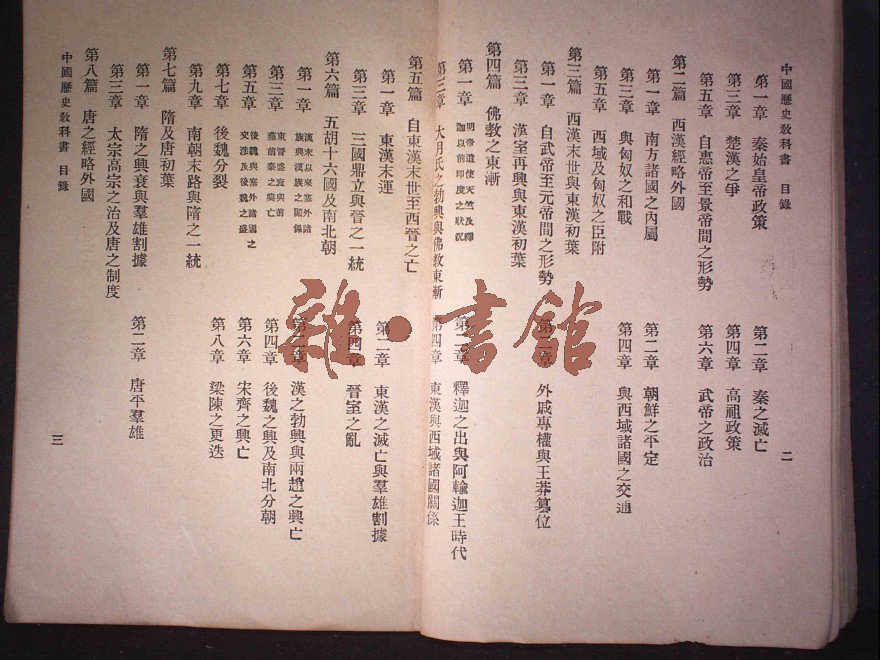 中國歷史敎科書　目錄
第一章　秦始皇帝政策　第二章　秦之滅亡
第三章　楚漢之爭　第四章　高祖政策
第五章　自惠帝至景帝間之形勢　第六章　武帝之政治
第二篇　西漢經略外國
第一章　南方諸國之內屬　第二章　朝鮮之平定
第三章　與匈奴之和戰　第四章　與西域諸國之交通
第五章　西域及匈奴之臣附
第三篇　西漢末世與東漢初葉
第一章　自武帝至元帝間之形勢　第二章　外戚專權與王莽篡位
第三章　漢室再興與東漢初葉
第四篇　佛敎之東漸
第一章　明帝遣使天竺及釋迦以前印度之狀況　第二章　釋迦之出與阿輸迦王時代
第三章　大月氏之勃興與佛敎東漸　第四章　東漢與西域諸國關係
二
第五篇　自東漢末世至西晉之亡
第一章　東漢末運　第二章　東漢之滅亡與羣雄割據
第三章　三國鼎立與晉之一統　第四章　晉室之亂
第六篇　五胡十六國及南北朝
第一章　漢末以來塞外諸族與漢族之關係　第二章　漢之勃興與兩趙之興亡
第三章　東晉盛衰與前燕前秦之興亡　第四章　後魏之興及南北分朝
第五章　後魏與塞外諸國之交涉及後魏之盛　第六章　宋齊之興亡
第七章　後魏分裂　第八章　梁陳之更迭
第九章　南朝末路與隋之一統
第七篇　隋及唐初葉
第一章　隋之興衰與羣雄割據　第二章　唐平羣雄
第三章　太宗高宗之治及唐之制度
第八篇　唐之經略外國
中國歷史敎科書　目錄
三
雜·書館